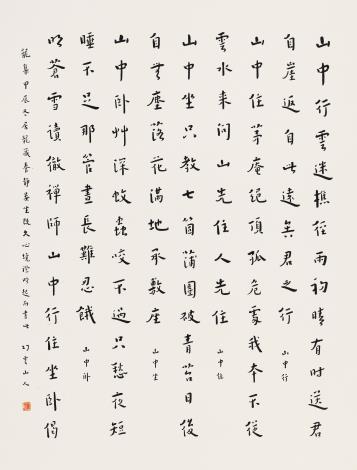 山中行雲迷樵徑雨初晴有時送君
自崖返自此遠矣君之行 山中行
山中住茅庵絕頂孤危處我本不從
雲水來問山先住人先住 山中住
山中坐只教七箇蒲團破青苔日後
自無塵落花滿地承敷座 山中坐
山中臥艸深蚊蟲咬不過只愁夜短
睡不足那管晝長難忍餓 山中卧
明蒼雪讀徹禪師山中行住坐臥偈
甲辰冬 山人